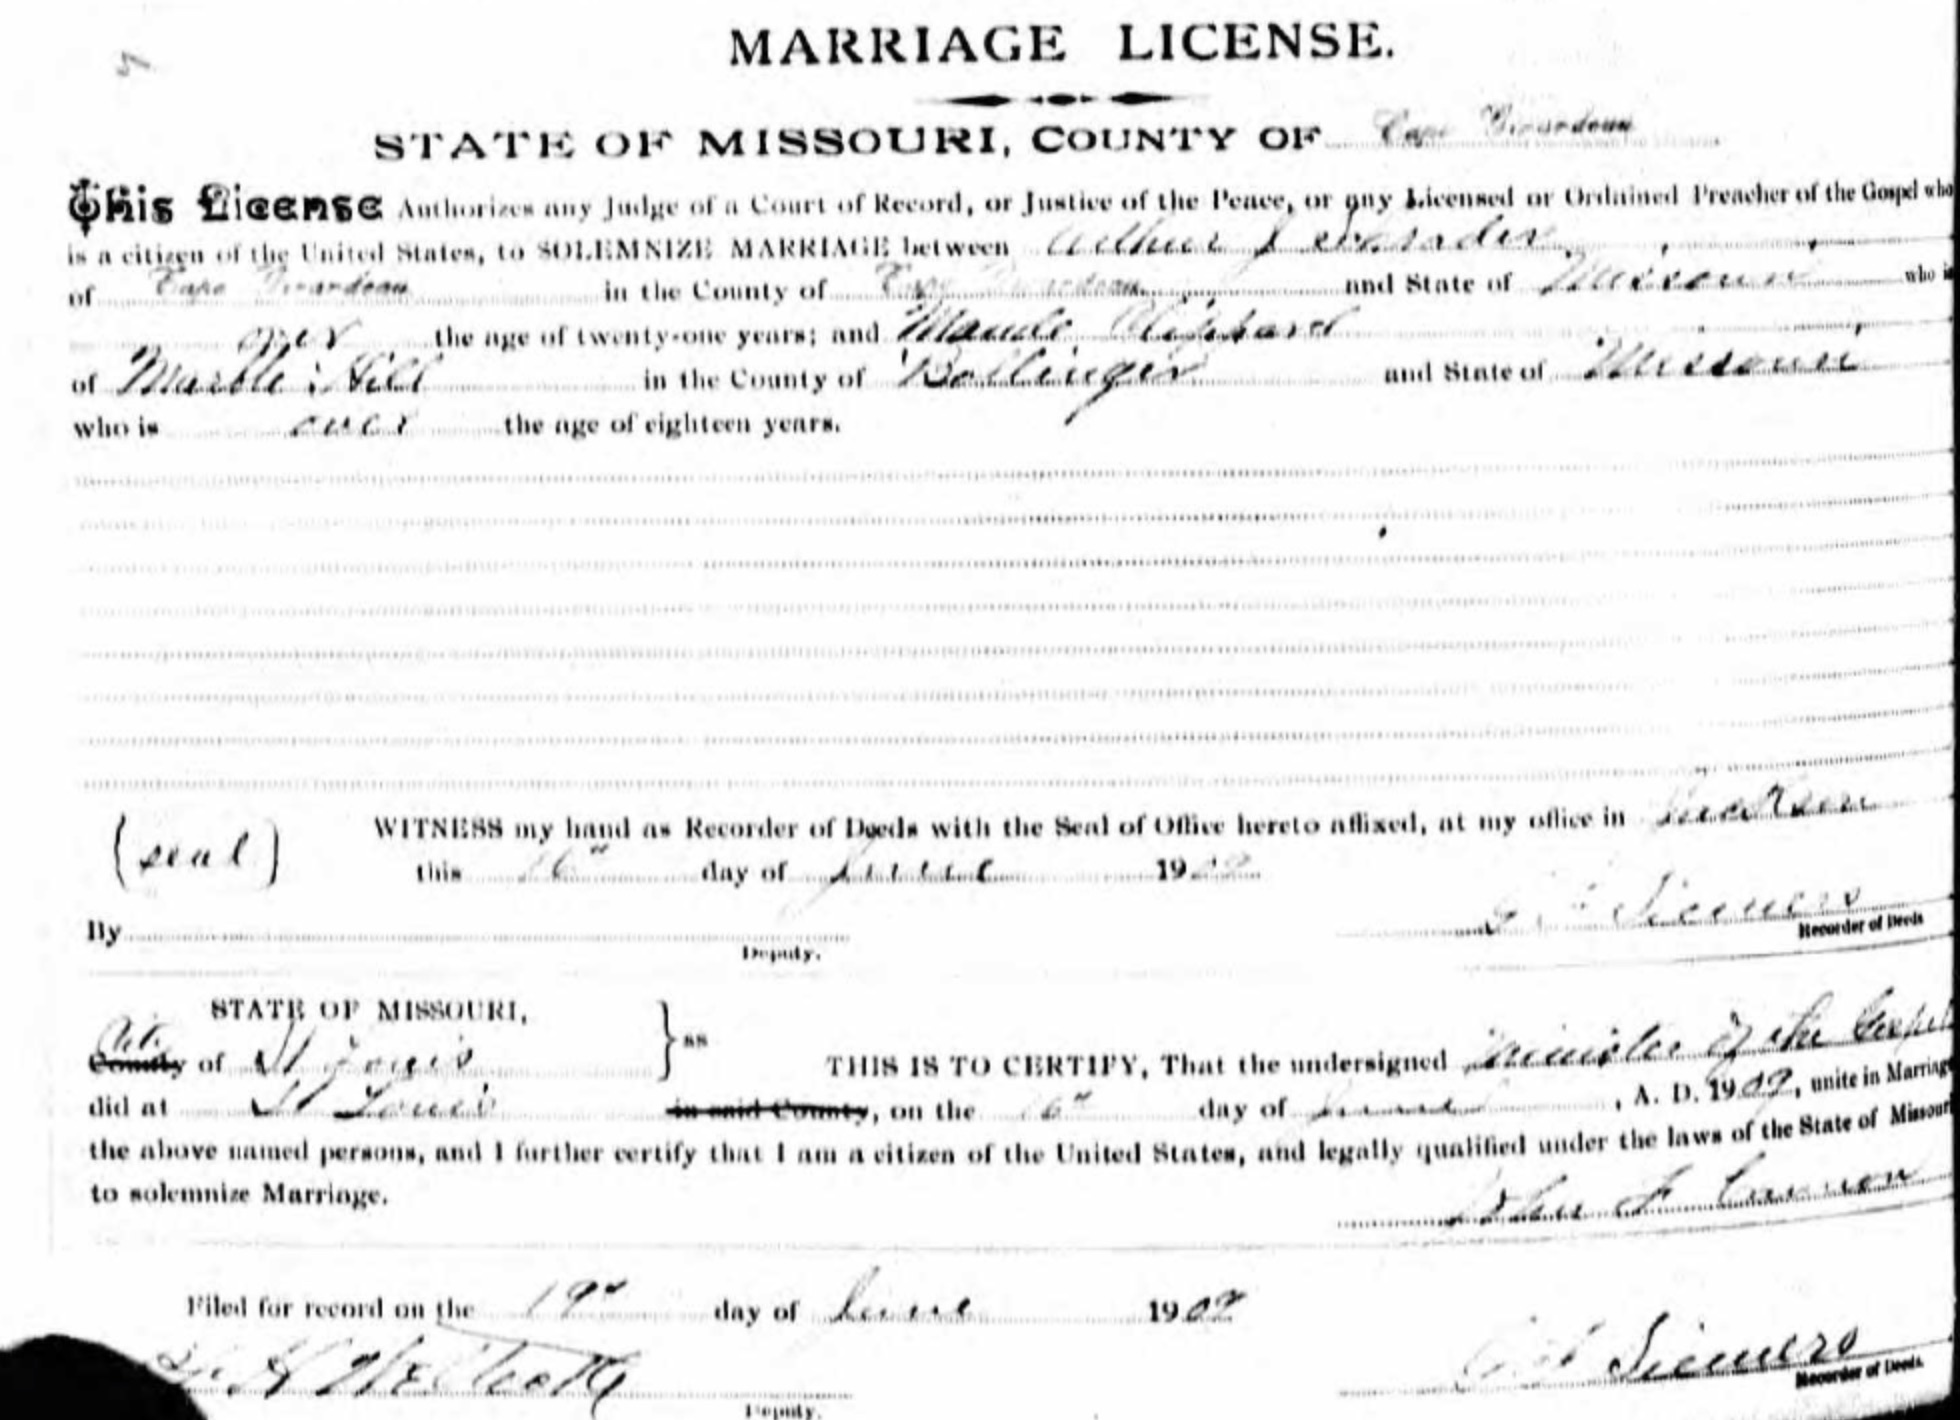 MARRIAGE LICENSE.
STATE OF MISSOURI, COUNTY OF Cape Girardeau
This License Authorizes any Judge of a Court of Record, or Justice of the Peace, or any Licensed or Ordained Preacher of the Gospel who
is a citizen of the United States, to SOLEMNIZE MARRIAGE between Arthur J Schrader
of Cape Girardeau in the County of Cape Girardeau and State of Missouri who is
over the age of twenty-one years; and Maude
of Marble Hill in the County of Bollinger and State of Missouri
who is over the age of eighteen years.
(seal) WITNESS my hand as Recorder of Deeds with the Seal of Office hereto affixed, at my office in Jackson
this 16" day of June 19
By Siemers
Deputy. Recorder of Deeds
STATE OF MISSOURI,
City
County of St Louis } ss THIS IS TO CERTIFY, That the undersigned Minister of the Gospel
did at St Louis in said County, on the 16" day of June, A. D. 1909, unite in Marriage
the above named persons, and I further certify that I am a citizen of the United States, and legally qualified under the laws of the State of Missouri
to solemnize Marriage.
John F Cannon
Filed for record on the 19" day of June 1909
Siemers
Deputy. Recorder of Deeds.